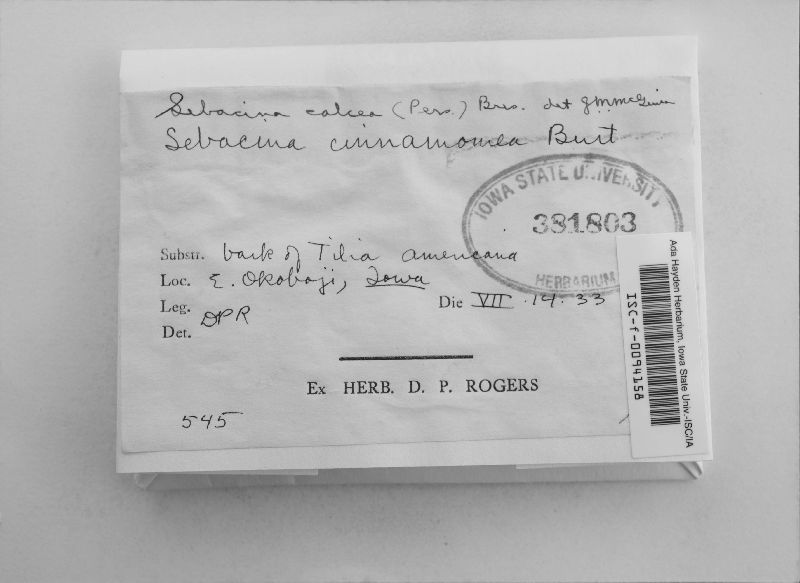 Sebacina calcea (Pers.) Bres. det G M McGinn
Sebacina cinnamomea Burt
IOWA STATE UNIVERSITY
381803
HERBARIUM
Substr. bark of Tilia americana
Loc. E. Okoboji, Iowa
Leg. Die VII · 14 · 33
DPR
Det.
Ex HERB. D. P. ROGERS
545
Ada Hayden Herbarium, Iowa State Univ.-ISC/IA
ISC-f-0094158